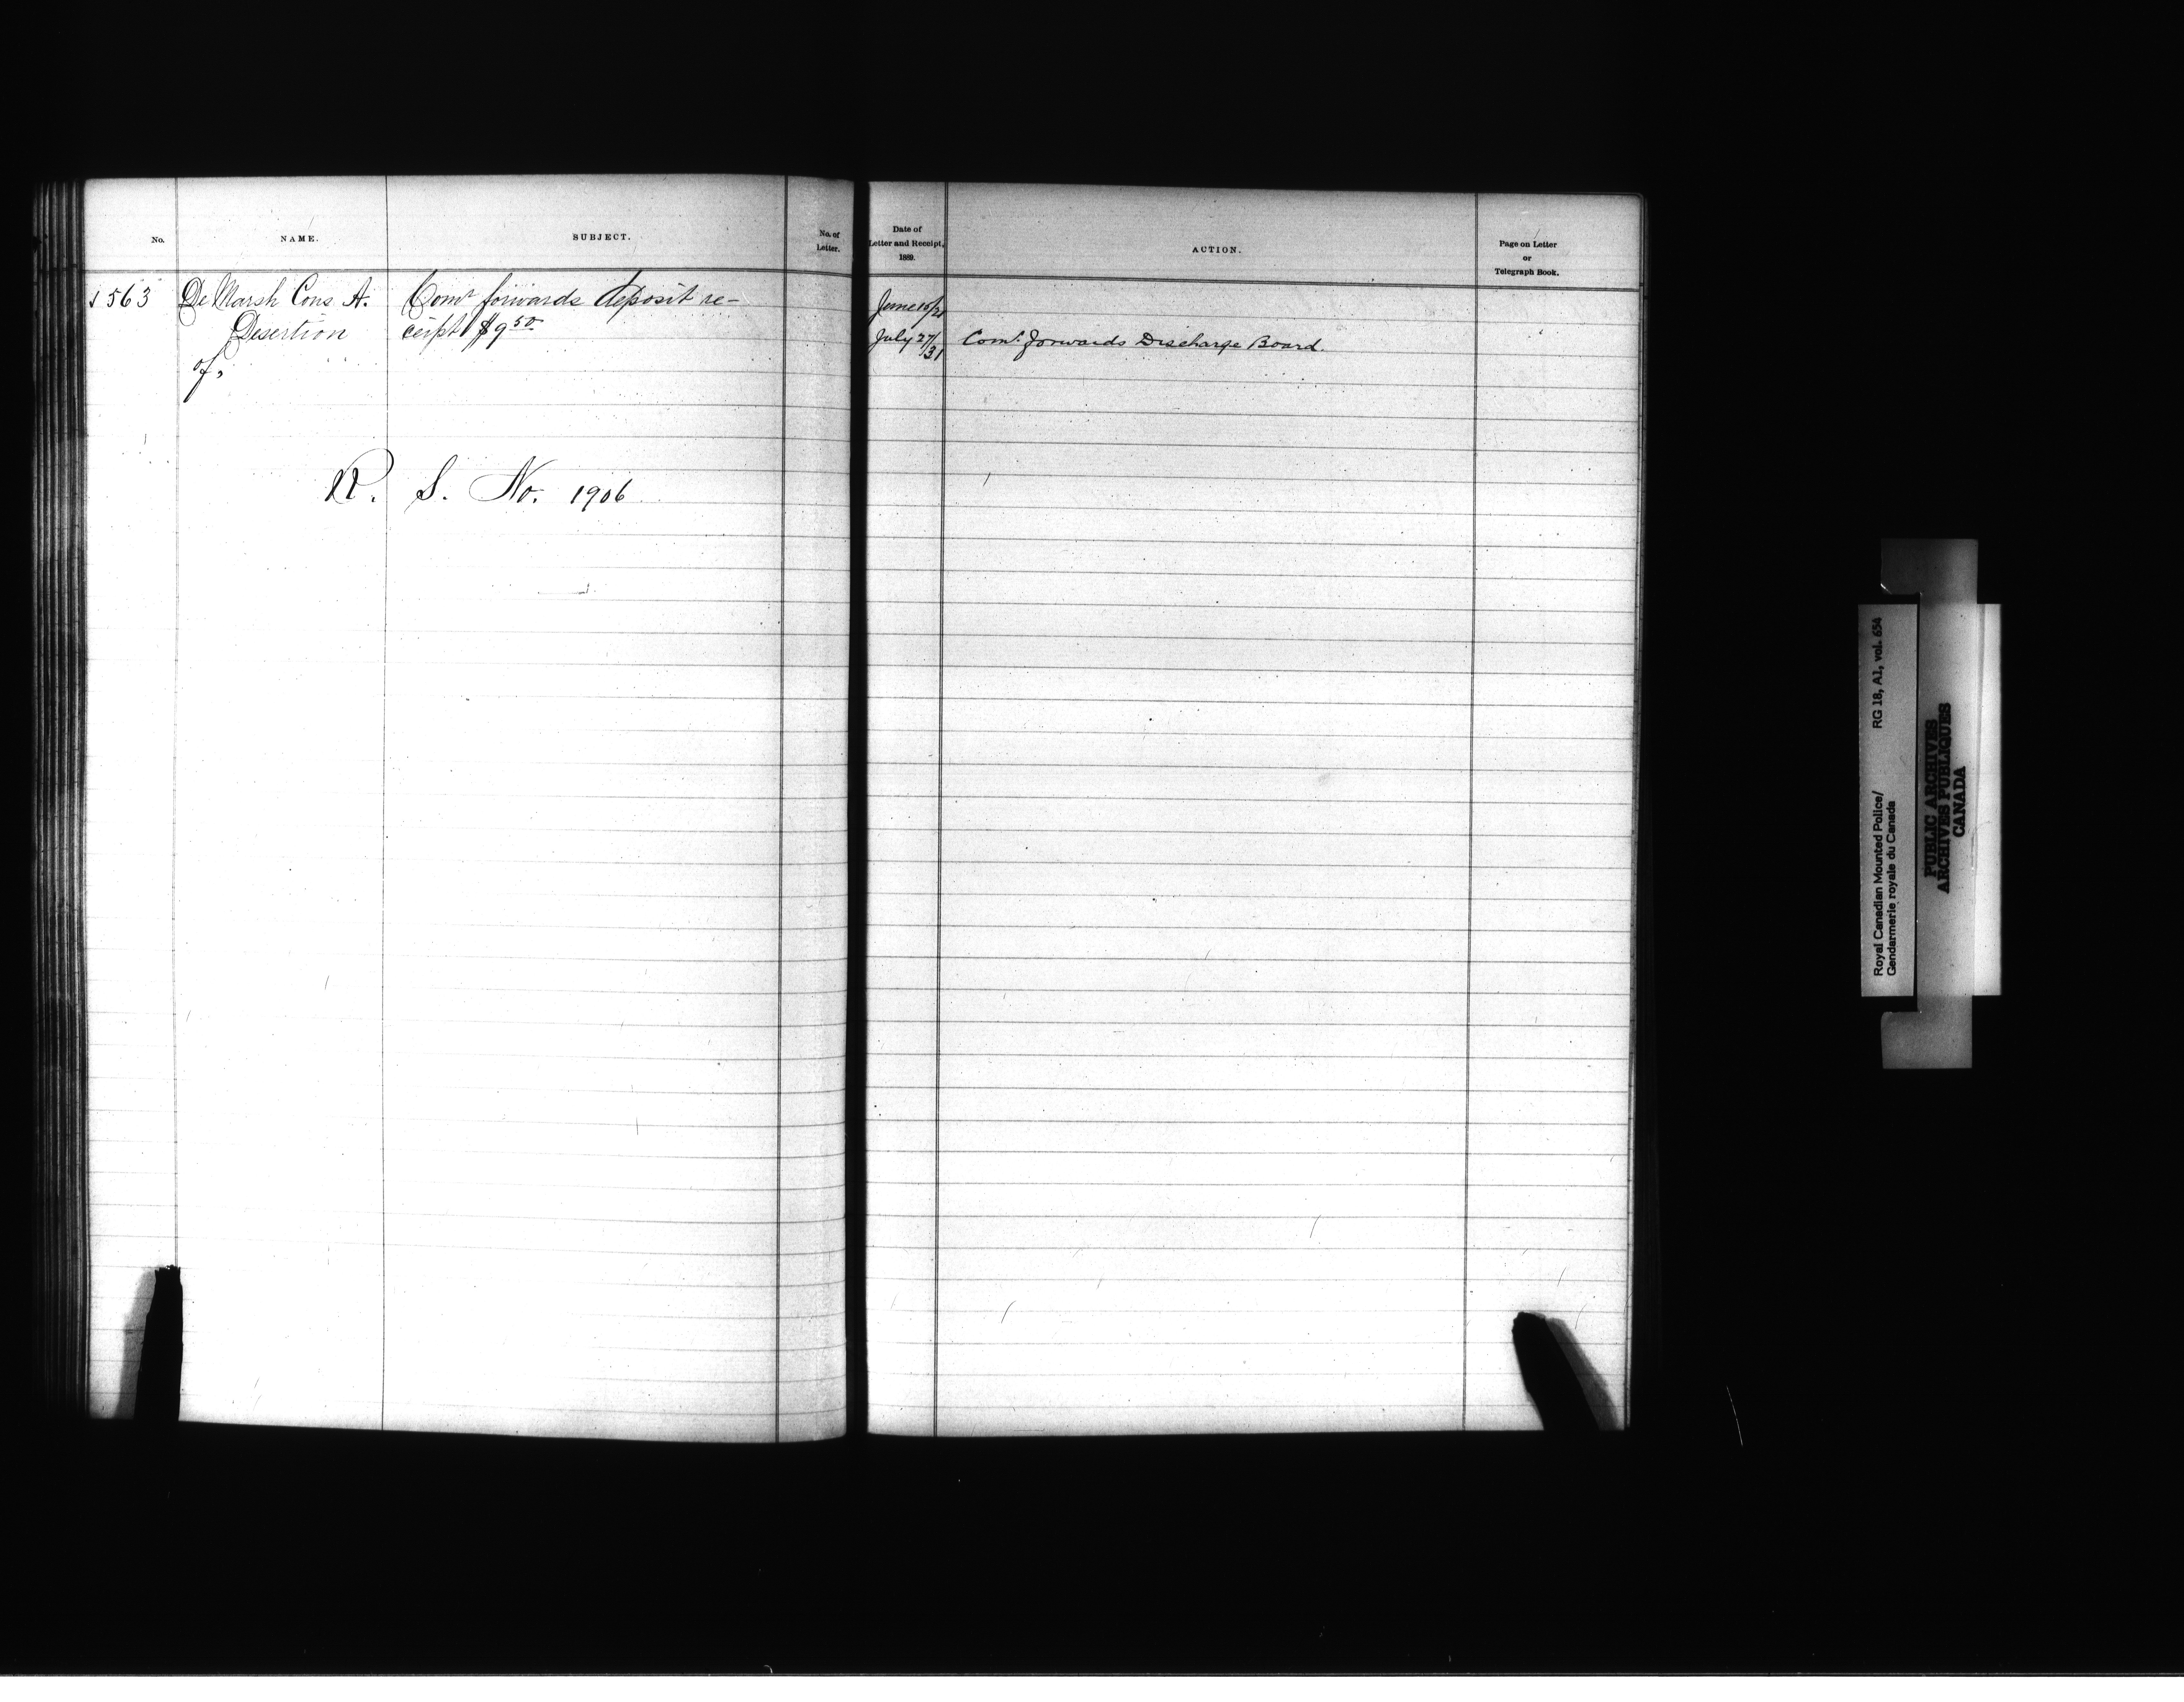 No.
NAME.
SUBJECT.
No. of
Letter.
563 De Marsh Cons A. Comr forwards deposit re-
Desertion ceipt $9 50
of,
R. S. No. 1906
Date of
Letter and Receipt,
1889.
ACTION.
Page on Letter
or
Telegraph Book.
June
July 27/31 Comr. forwards Discharge Board.
Royal Canadian Mounted Police/ RG 18, A1, vol. 654
Gendarmerie royale du Canada
PUBLIC ARCHIVES
ARCHIVES PUBLIQUES
CANADA